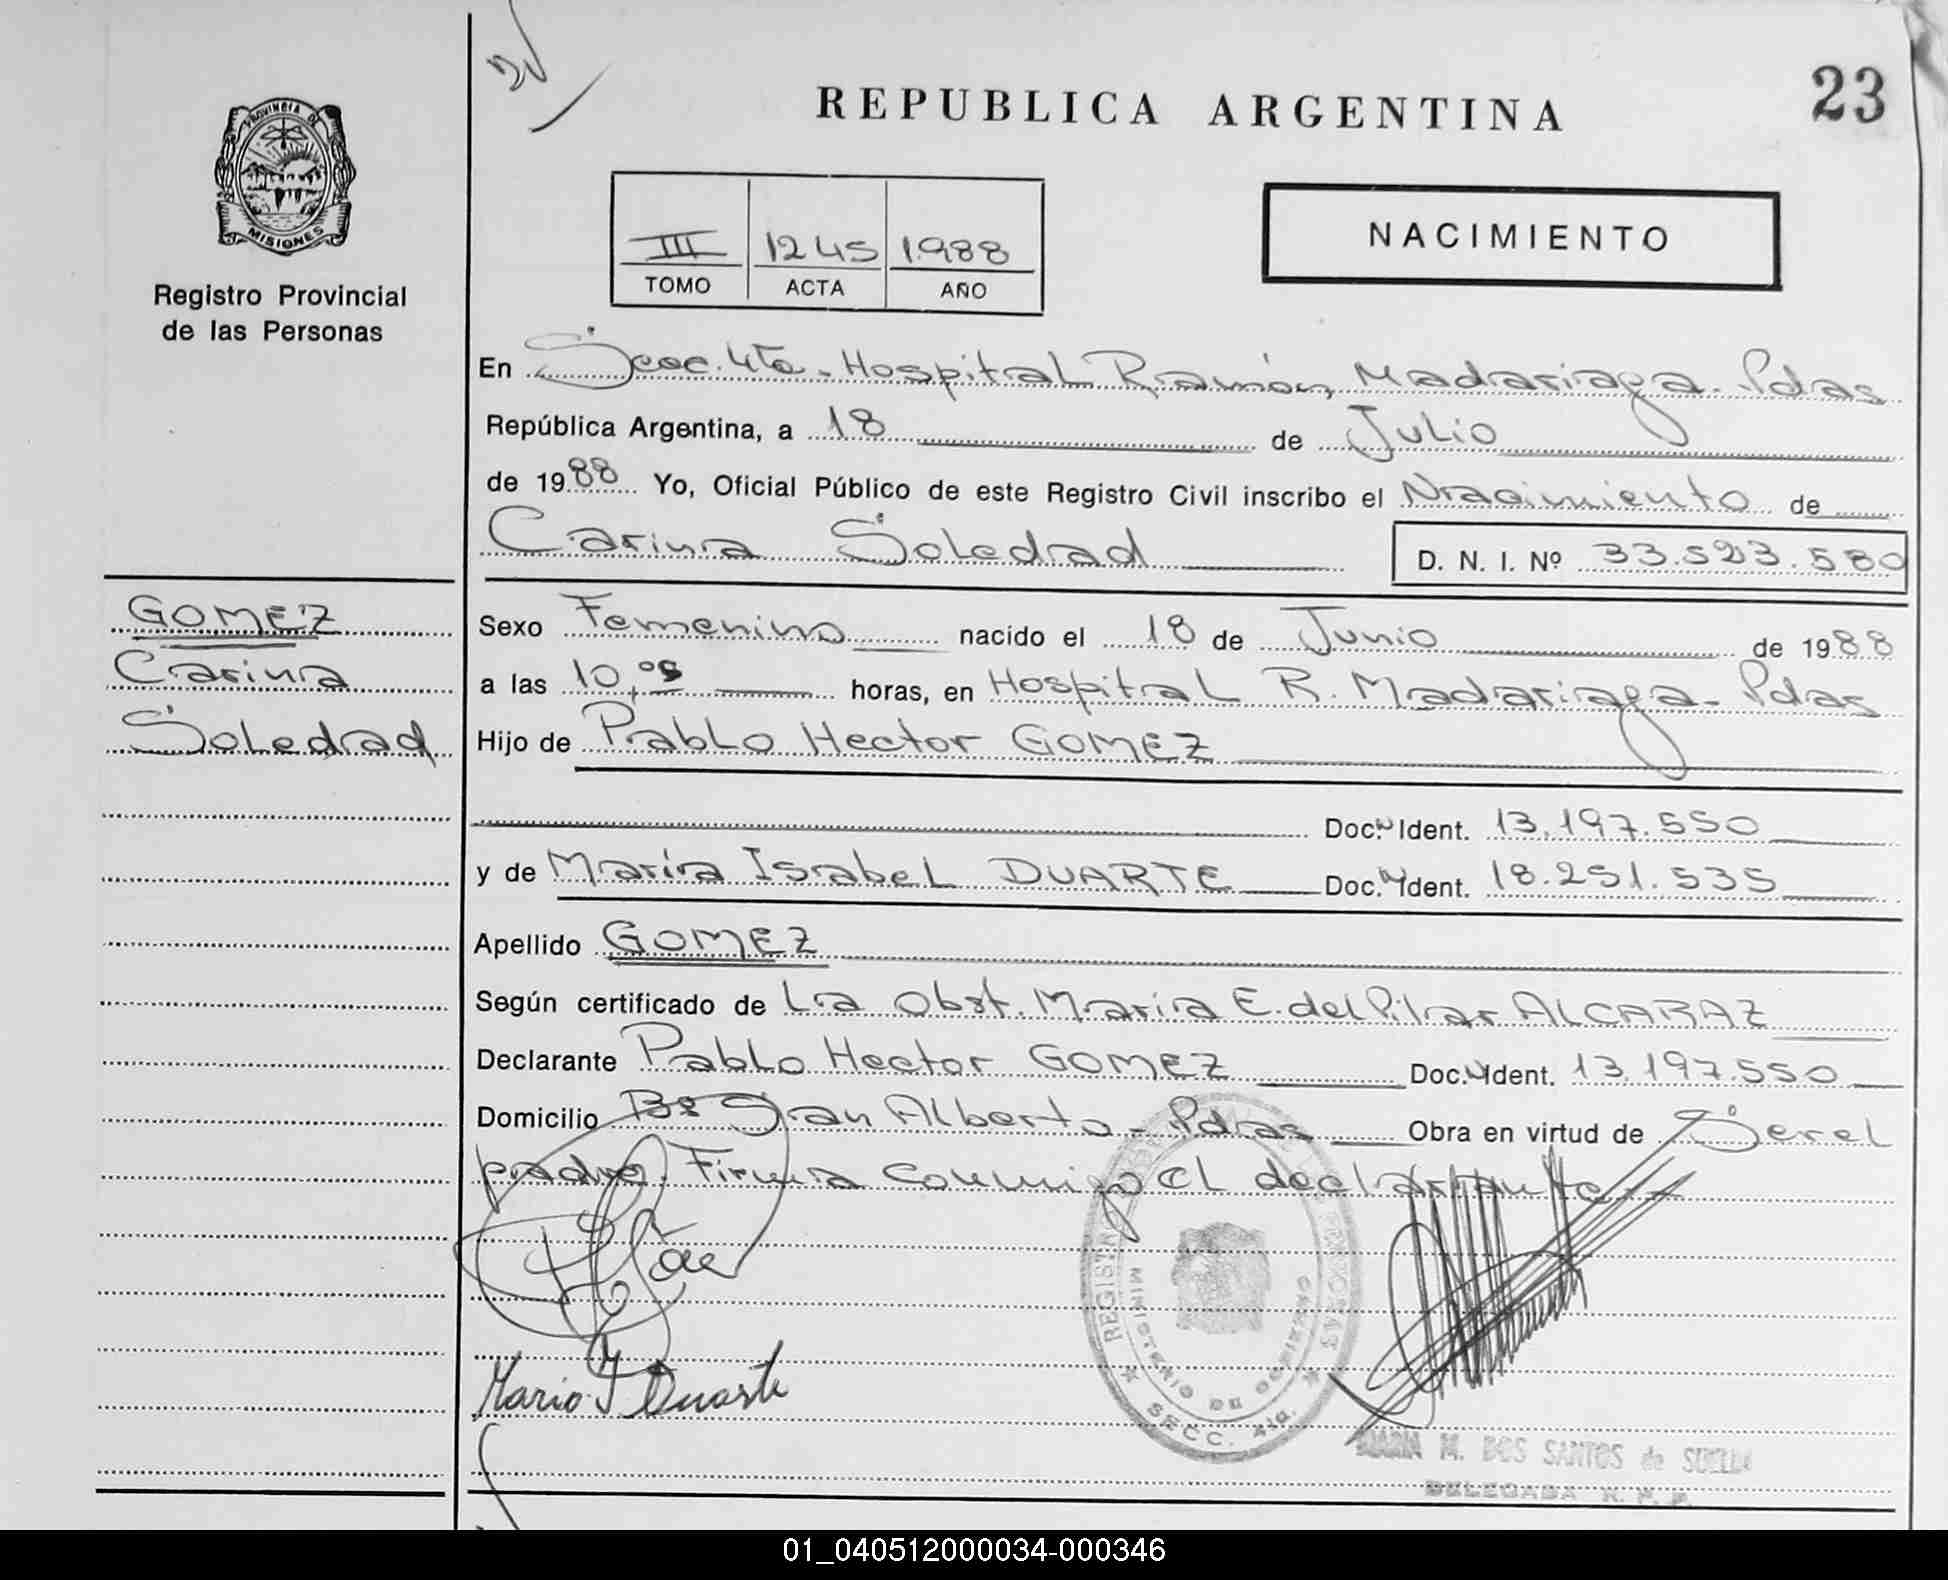 REPUBLICA ARGENTINA
23
PROVINCIA DE
MISIONES
Registro Provincial
de las Personas
III 1245 1988
TOMO ACTA AÑO
NACIMIENTO
En Secc. 4ta. Hospital Ramón Madariaga. Pdas
República Argentina, a 18 de Julio
de 1988 Yo, Oficial Público de este Registro Civil inscribo el Nacimiento de
Carina Soledad D. N. I. Nº 33.523.580
GOMEZ
Carina
Soledad
Sexo Femenino nacido el 18 de Junio de 1988
a las 10,05 horas, en Hospital R. Madariaga- Pdas
Hijo de Pablo Hector GOMEZ
Doc. Ident. 13.197.550
y de María Isabel DUARTE Doc. Ident. 18.251.535
Apellido GOMEZ
Según certificado de La Obst. María E. del Pilar ALCARAZ
Declarante Pablo Hector GOMEZ Doc. Ident. 13.197.550
Domicilio Bº San Alberto - Pdas Obra en virtud de Ser el
padre. Firma conmigo el declarante
Maria I Duarte
MINISTERIO DE GOBIERNO
SECC. 4ta.
MARIA M. DOS SANTOS de
DELEGADA R. P. P.
01_040512000034-000346